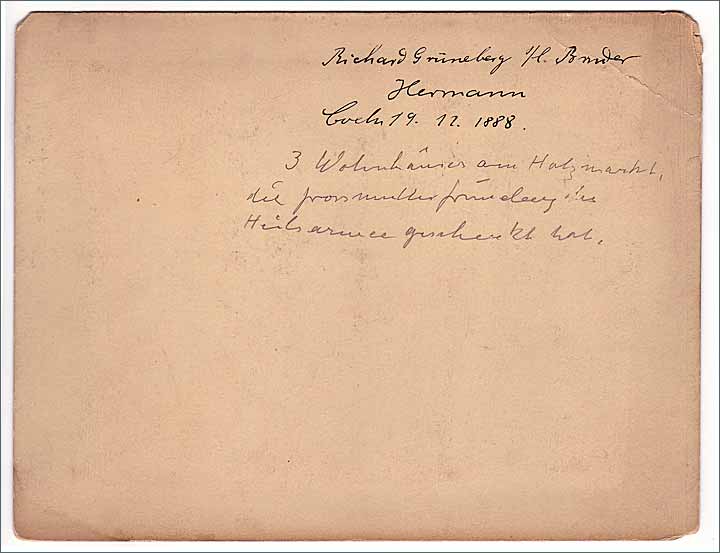 Richard Grüneberg s/l. Bruder
Hermann
Coeln 19. 12. 1888.
3 Wohnhäuser am Holzmarkt,
die Grossmutter Grüneberg der
Heilsarmee geschenkt hat.